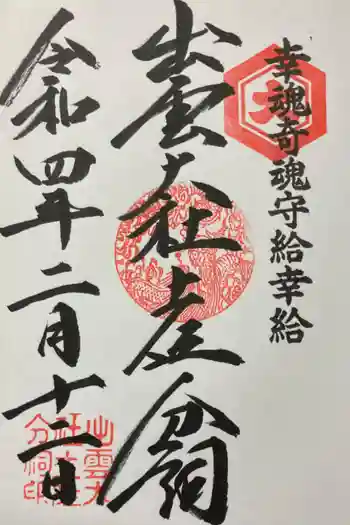 幸魂奇魂守給幸給
出雲大社土産分祠
令和四年二月十二日
大
出雲大
社土産
分祠印